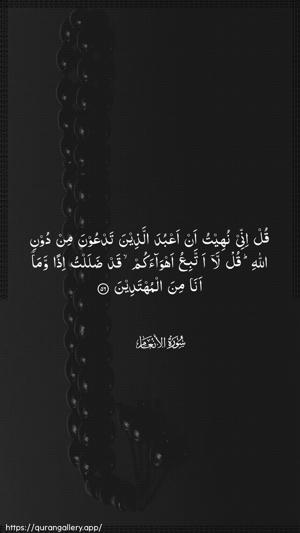 قُلْ اِنِّىْ نُهِيْتُ اَنْ اَعْبُدَ الَّذِيْنَ تَدْعُوْنَ مِنْ دُوْنِ
اللّٰهِ ؕ قُلْ لَّاۤ اَ تَّبِعُ اَهْوَآءَكُمْ ۙ قَدْ ضَلَلْتُ اِذًا وَّمَاۤ
اَنَا مِنَ الْمُهْتَدِيْنَ ۝۵۶
سُورَةُ الأَنْعَام
https://qurangallery.app/